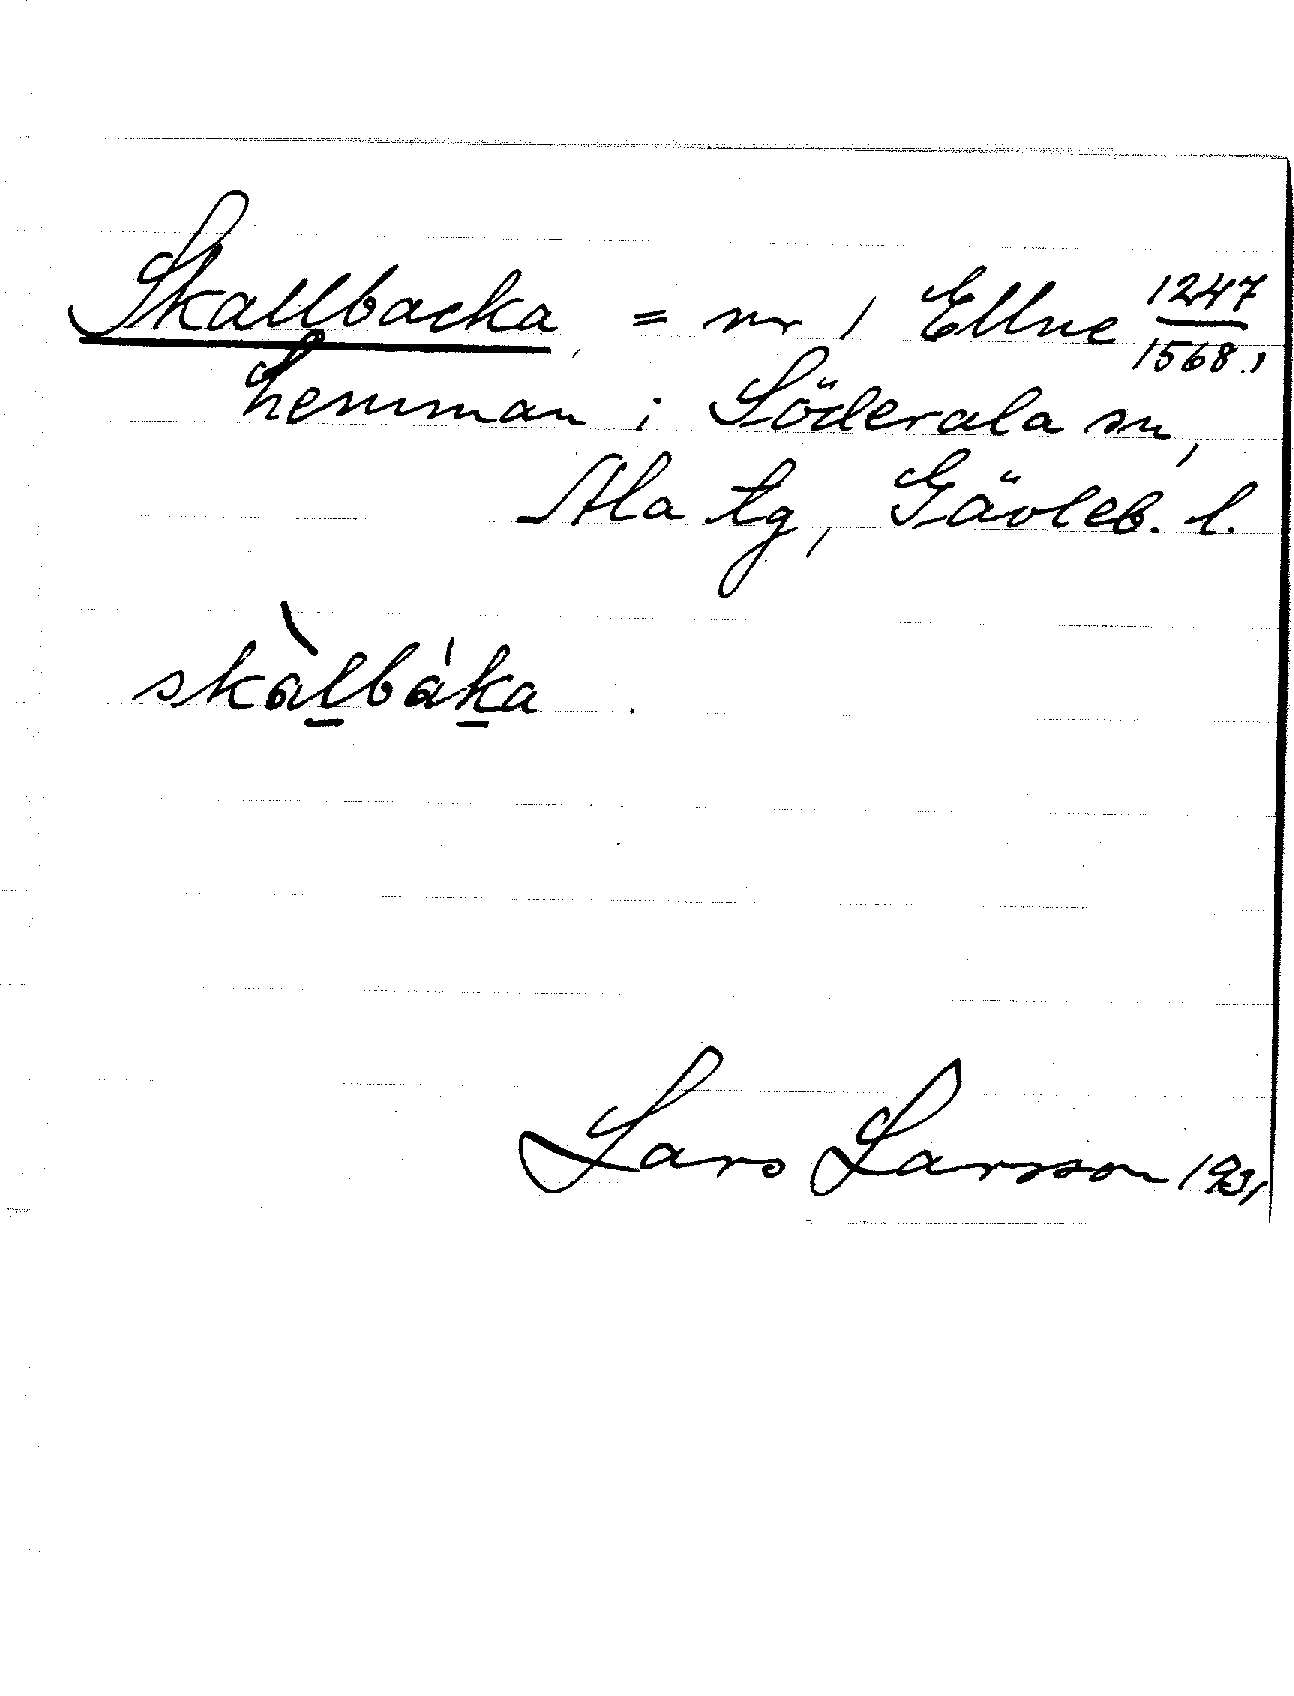 Skallbacka = nr 1 Ellne 1247/1568,
hemman i Söderala sn,
Ala tg, Gävleb. l.
skàl̲bák̲a
Lars Larsson 1931